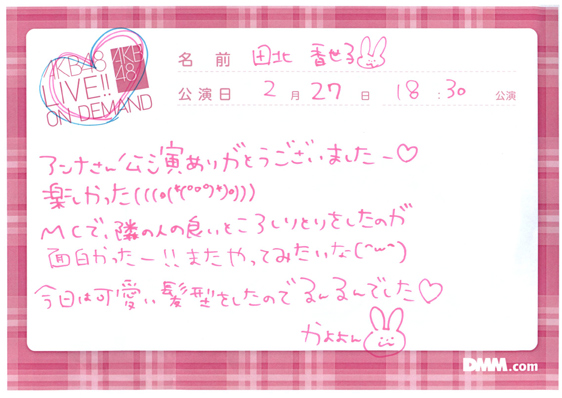 AKB48
LIVE!!
ON DEMAND
AKB
48
名 前 田北 香世子
公演日 2月27日 18:30 公演
アンナさん公演ありがとうございましたー♡
楽しかった(((o(*(°°°)*)o)))
MCで、隣の人の良いところしりとりをしたのが
面白かったー!!またやってみたいな(^ω^)
今日は可愛い髪型をしたのでるんるんでした♡
かよよん
DMM.com